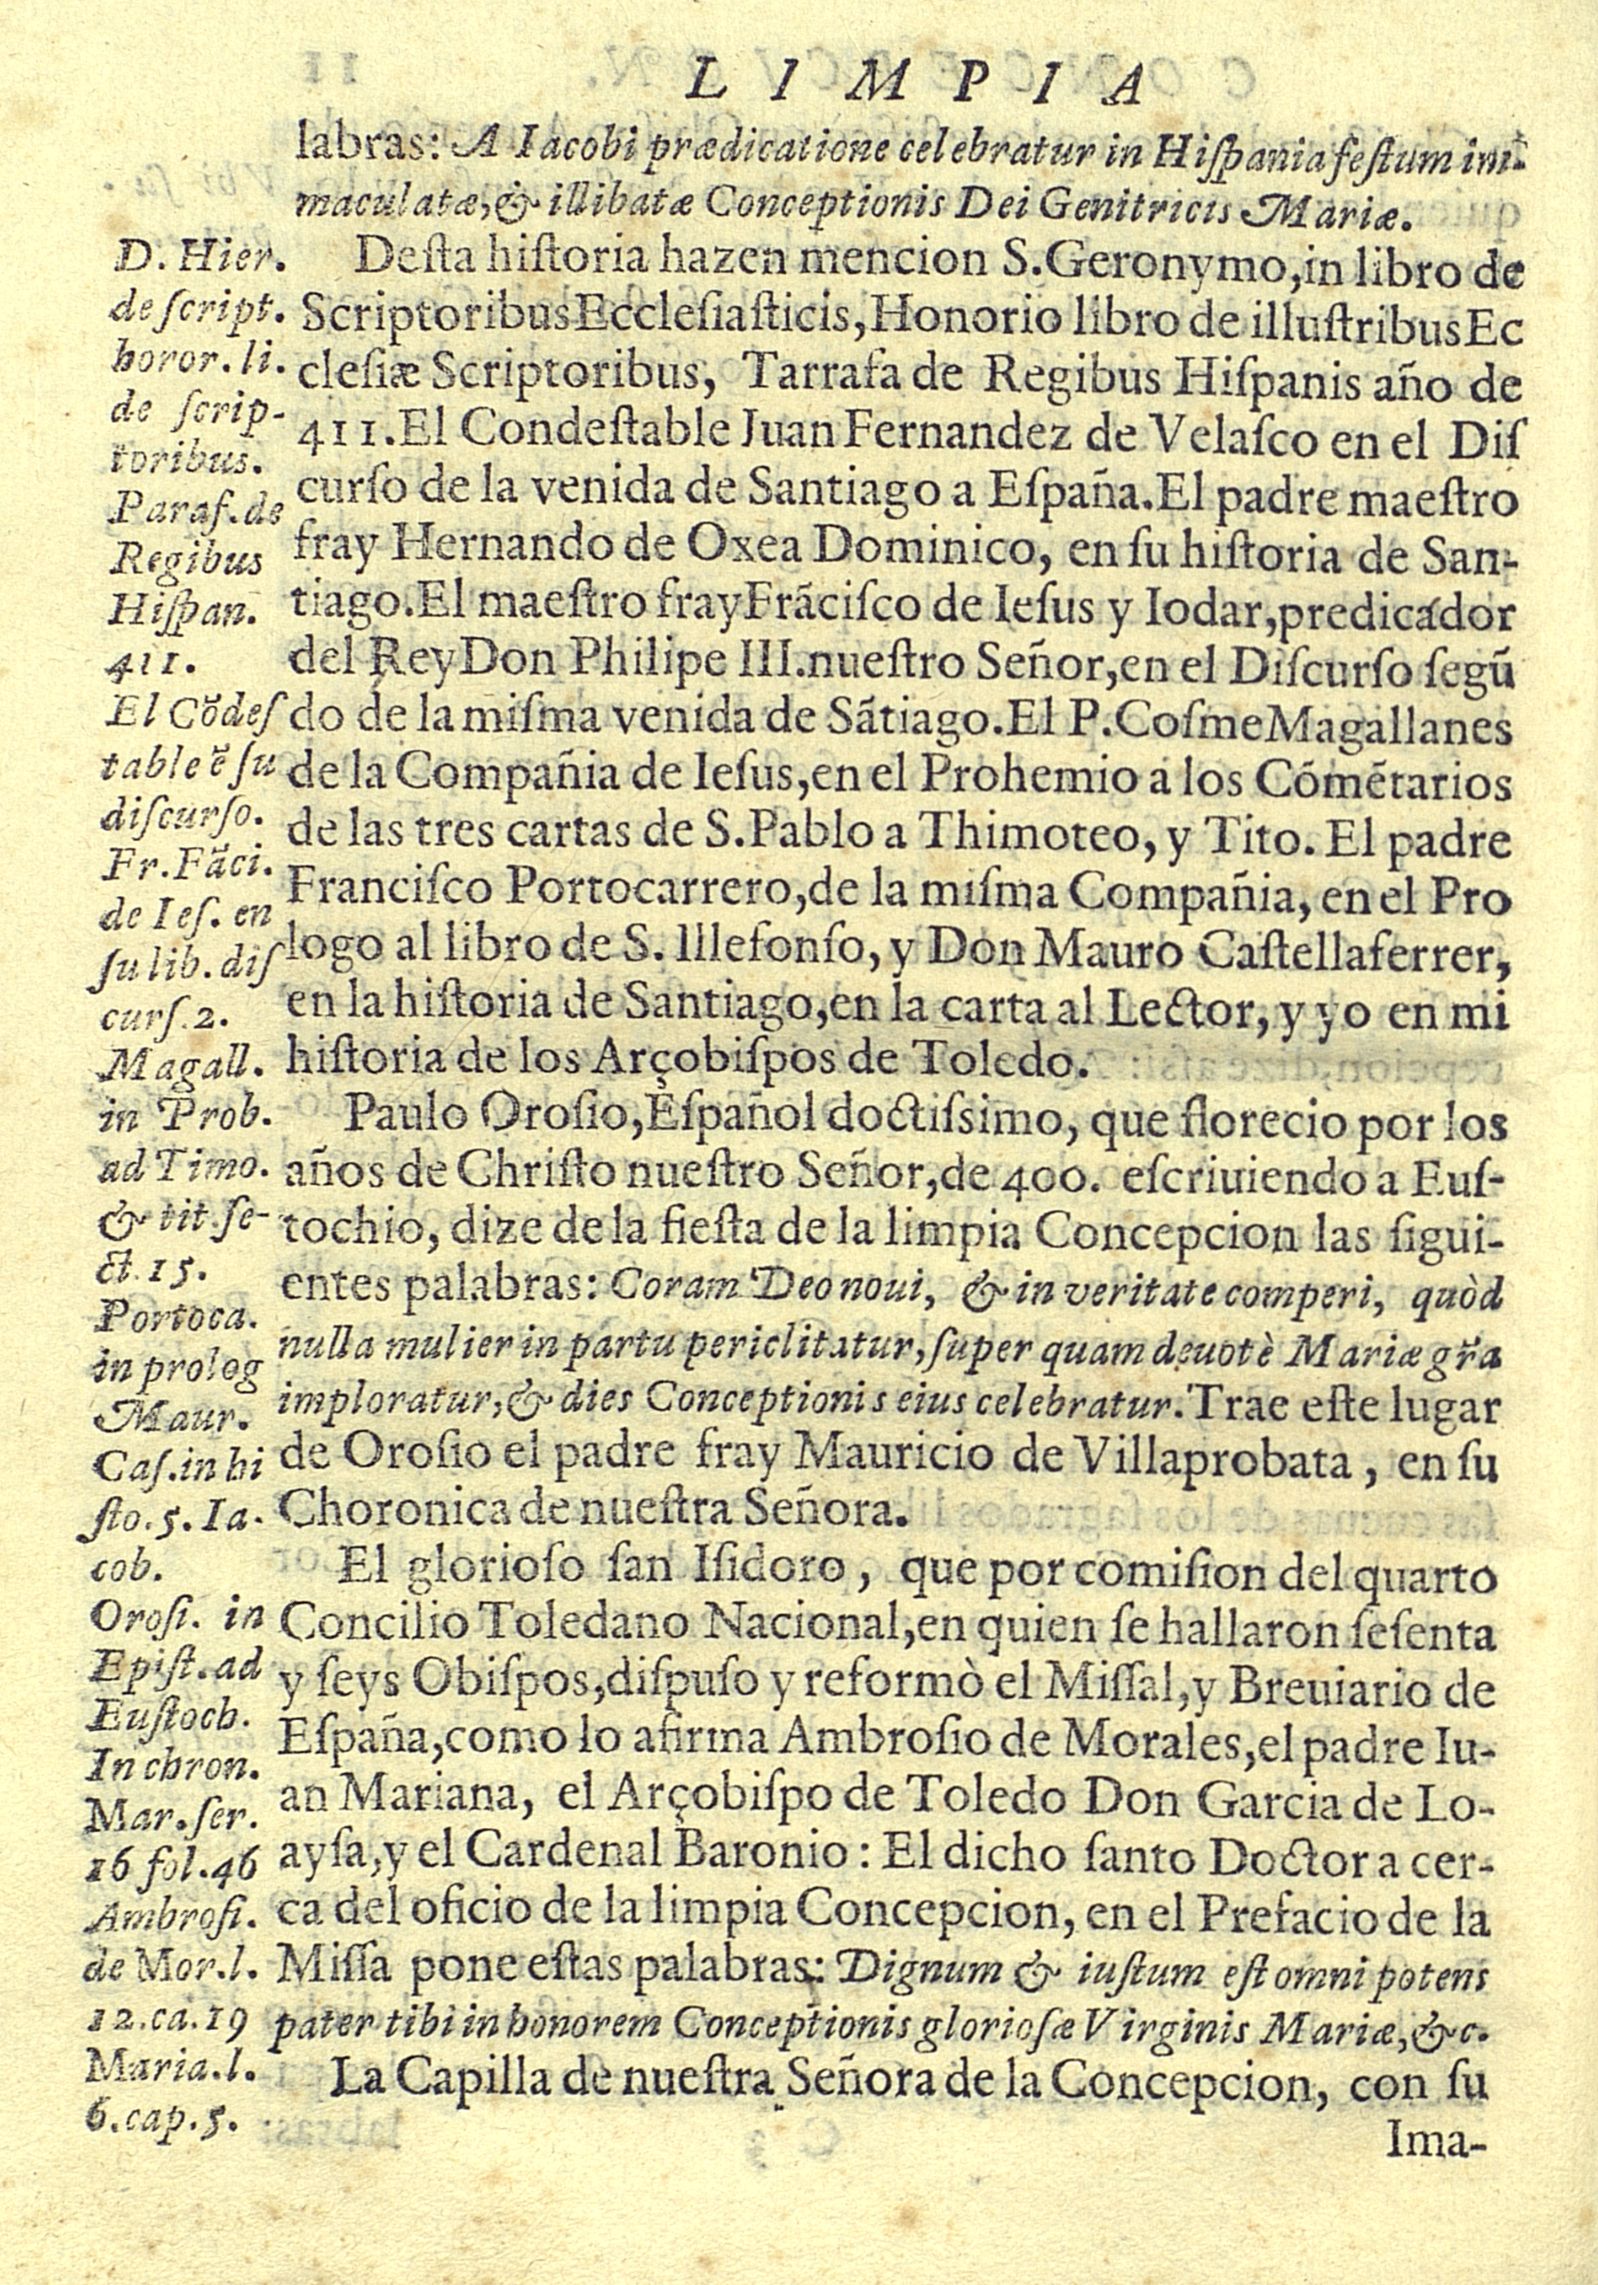 LIMPIA
labras: A Iacobi prædicatione celebratur in Hiſpania feſtum im-
maculatæ, & illibatæ Conceptionis Dei Genitricis Mariæ.
Deſta hiſtoria hazen mencion S.Geronymo,in libro de
Scriptoribus Eccleſiaſticis,Honorio libro de illuſtribus Ec
cleſiæ Scriptoribus, Tarrafa de Regibus Hiſpanis año de
411.El Condeſtable Juan Fernandez de Velaſco en el Diſ
curſo de la venida de Santiago a Eſpaña.El padre maeſtro
fray Hernando de Oxea Dominico, en ſu hiſtoria de San-
tiago.El maeſtro fray Frãciſco de Ieſus y Iodar,predicador
del Rey Don Philipe III.nueſtro Señor,en el Diſcurſo ſegũ
do de la miſma venida de Sãtiago.El P.Coſme Magallanes
de la Compañia de Ieſus,en el Prohemio a los Cõmẽtarios
de las tres cartas de S.Pablo a Thimoteo, y Tito. El padre
Franciſco Portocarrero,de la miſma Compañia, en el Pro
logo al libro de S. Illefonſo, y Don Mauro Caſtellaferrer,
en la hiſtoria de Santiago,en la carta al Lector, y yo en mi
hiſtoria de los Arçobiſpos de Toledo.
Paulo Oroſio,Eſpañol doctiſsimo, que florecio por los
años de Chriſto nueſtro Señor,de 400. eſcriuiendo a Euſ-
tochio, dize de la fieſta de la limpia Concepcion las ſigui-
entes palabras: Coram Deo noui, & in veritate comperi, quòd
nulla mulier in partu periclitatur,ſuper quam deuotè Mariæ gr̃a
imploratur,& dies Conceptionis eius celebratur. Trae eſte lugar
de Oroſio el padre fray Mauricio de Villaprobata, en ſu
Choronica de nueſtra Señora.
El glorioſo ſan Iſidoro, que por comiſion del quarto
Concilio Toledano Nacional,en quien ſe hallaron ſeſenta
y ſeys Obiſpos,diſpuſo y reformò el Miſſal,y Breuiario de
Eſpaña,como lo afirma Ambroſio de Morales,el padre Iu-
an Mariana, el Arçobiſpo de Toledo Don Garcia de Lo-
ayſa,y el Cardenal Baronio: El dicho ſanto Doctor a cer-
ca del oficio de la limpia Concepcion, en el Prefacio de la
Miſſa pone eſtas palabras: Dignum & iuſtum eſt omnipotens
pater tibi in honorem Conceptionis glorioſæ Virginis Mariæ,&c.
La Capilla de nueſtra Señora de la Concepcion, con ſu
Ima-
D. Hier.
de ſcript.
horor. li.
de ſcrip-
toribus.
Paraf. de
Regibus
Hiſpan.
411.
El Cõdeſ
table ẽ ſu
diſcurſo.
Fr. Fãci.
de Ieſ. en
ſu lib. diſ
curſ. 2.
Magall.
in Prob.
ad Timo.
& tit. ſe-
ct. 15.
Portoca.
in prolog
Maur.
Caſ. in hi
ſto. 5. Ia-
cob.
Oroſi. in
Epiſt. ad
Euſtoch.
In chron.
Mar. ſer.
16 fol. 46
Ambroſi.
de Mor. l.
12. ca. 19
Maria. l.
6. cap. 5.